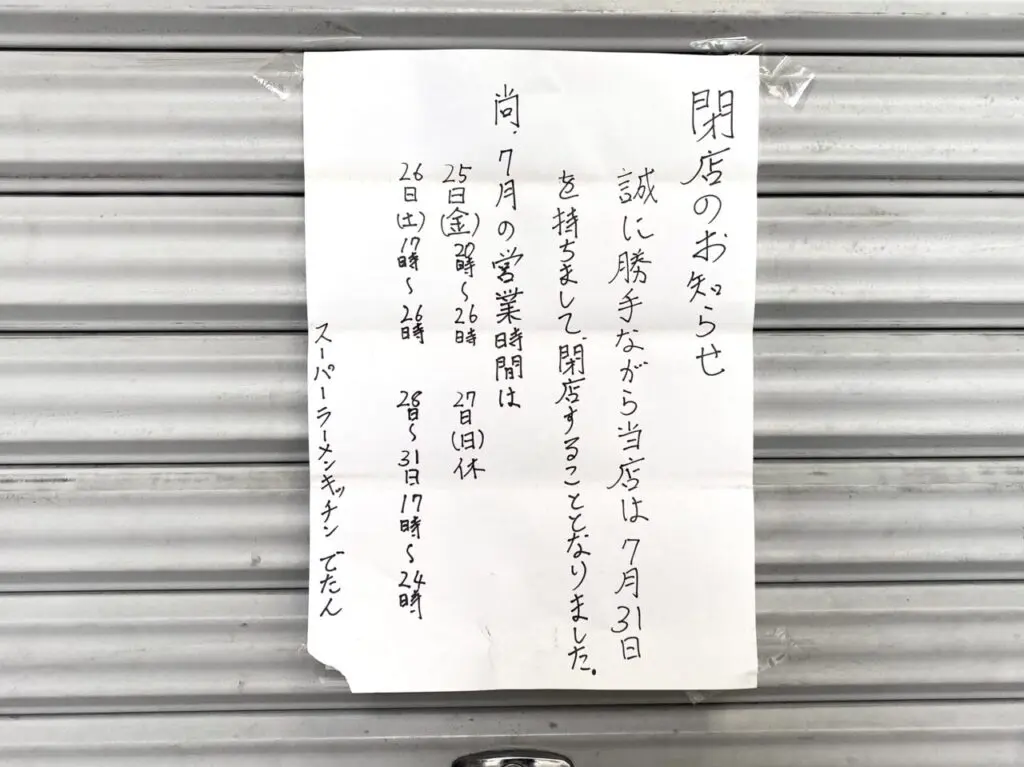 閉店のお知らせ
誠に勝手ながら当店は7月31日
を持ちまして閉店することとなりました。
尚、7月の営業時間は
25日(金)20時~26時 27日(日)休
26日(土)17時~26時 28日~31日17時~24時
スーパーラーメンキッチンでたん